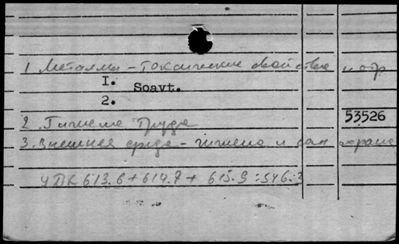 1 Металлы - Токсические свойства и отр
I. Soavt.
2.
53526
2. Гигиена труда
3. Внешняя среда - гигиена и сан охрана
УДК 613.6 + 614.7 + 615.9 : 546.3